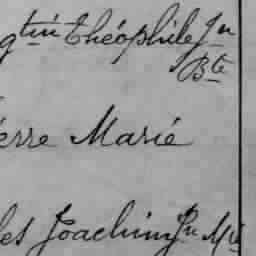 gtin Théophile Jn
Bte
erre Marie
les Joachim Jn Mie